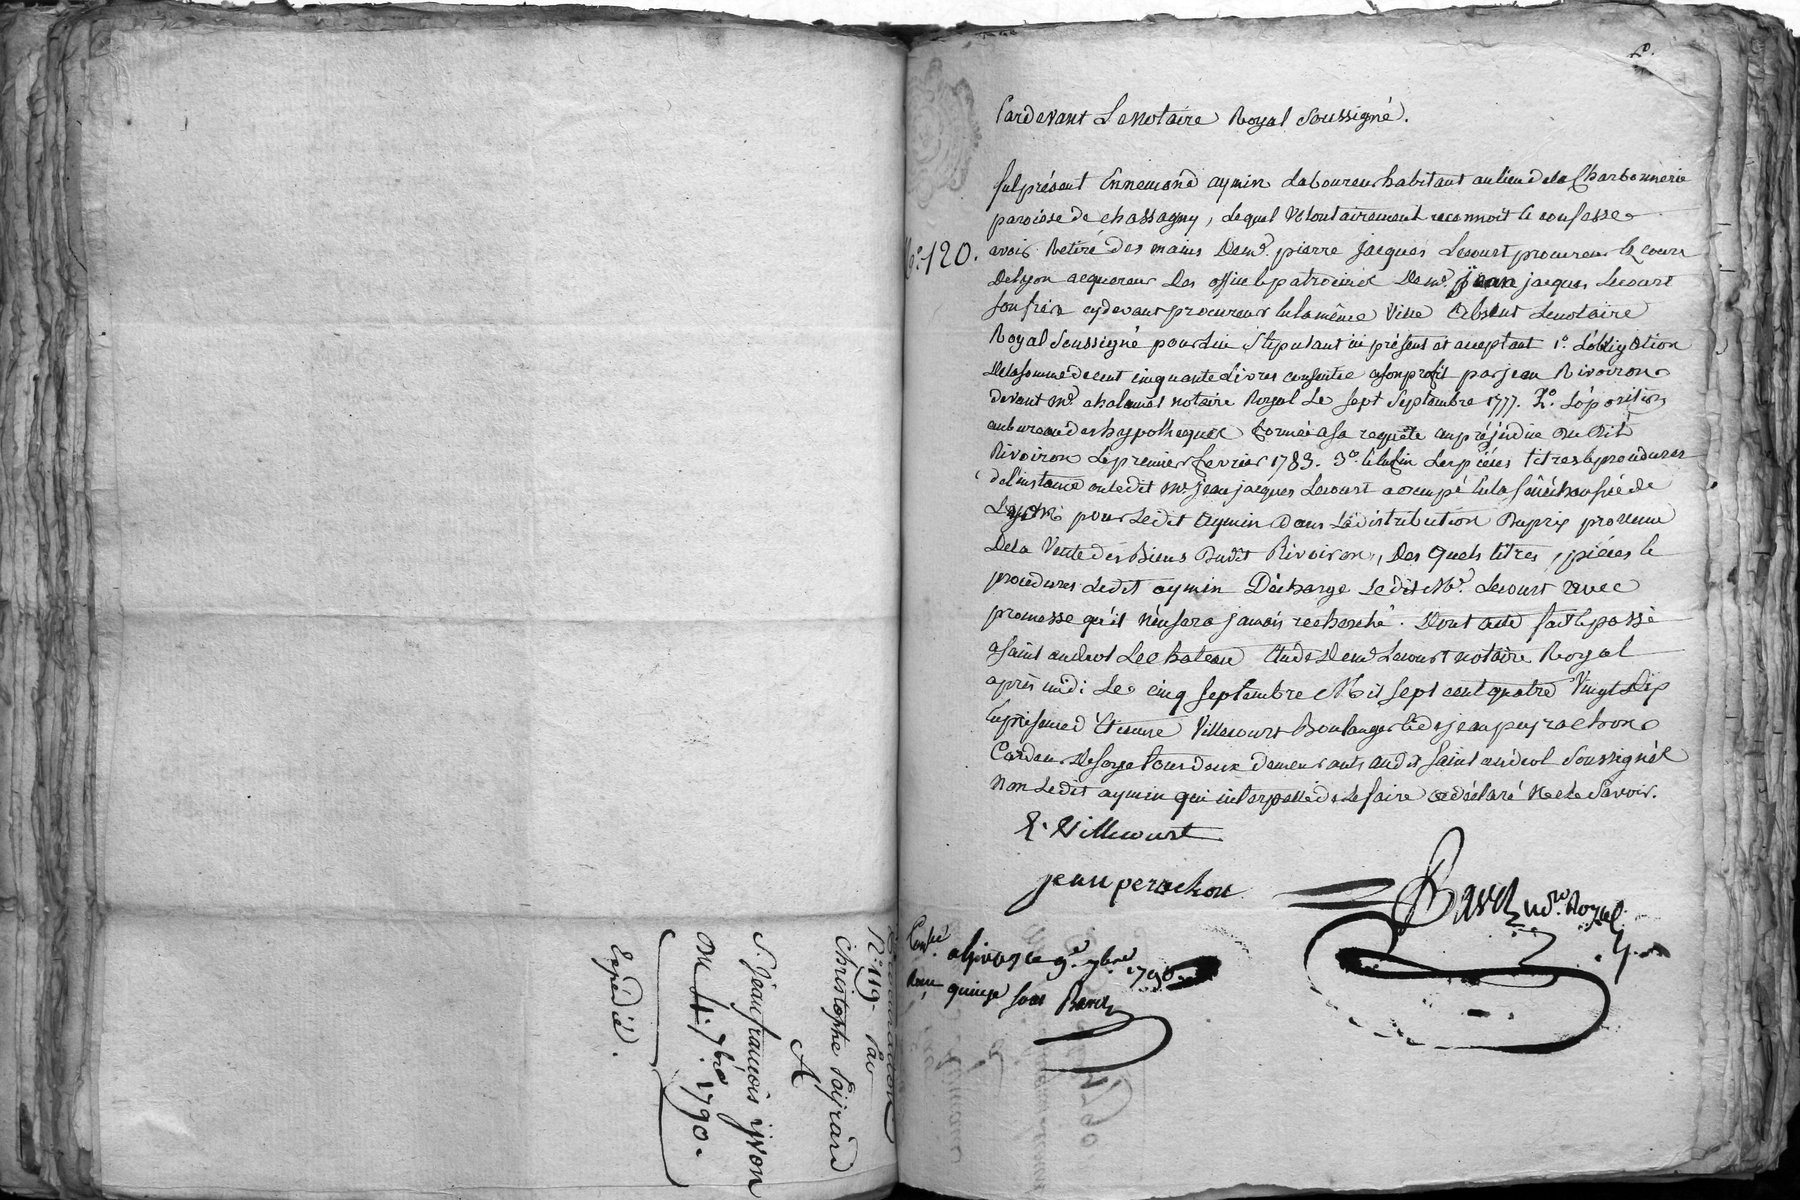 N.º 119.
Par
Christophe
A
S.r Jean françois yvon
Du 4. 7bre 1790.
Expédié.
Pardevant Le notaire Royal soussigné.
N.º 120.
fut présent Ennemond aymin Laboureur habitant au lieu de la Charbonnerie
paroisse de chassagny, Lequel Volontairement reconnoit & confesse
avoir Retiré des mains De me. pierre jacques Lecourt procureur es cours
De lyon acquereur Des office & patrocines De me. jean jacques Lecourt
son frere cydevant procureur en la même Ville Absent Le notaire
Royal soussigné pour Lui stipulant ici présent et acceptant 1º. L'obligation
De la somme de cent cinquante Livres consentie a son profit par jean Rivoiron
devant me. chalamel notaire Royal Le sept septembre 1777. 2º. L'oposition
au bureau des hypotheques formée a sa requête au préjudice Du Dit
Rivoiron Le premier fevrier 1783. 3º. & enfin Les piéces titres & procedures
de l'instance ou ledit me. jean jacques Lecourt a occupé en la sénéchaussée de
Lyon pour Ledit Aymin Dans La distribution Du prix provenu
De la Vente des Biens Dudit Rivoiron, Des quels titres, piéces &
procedures Ledit aymin Décharge Le dit Me. Lecourt avec
promesse qu'il n'en sera jamais recherché. Dont acte fait & passé
a saint andeol Le chateau Etude De me Lecourt notaire Royal
après midi Le cinq septembre Mil sept cent quatre Vingt Dix
En présence d'Etienne Villecourt Boulanger & de jean peyrachon
Cardeur De soye tous deux demeurants audit saint andeol soussignés
non Ledit aymin qui interpellé de Le faire a déclaré ne Le savoir.
E. Villecourt
jean perachon
Barel no.re Royal
Con.lé a Givors le 9.e 7bre 1790.
Reçu quinze sous Barel